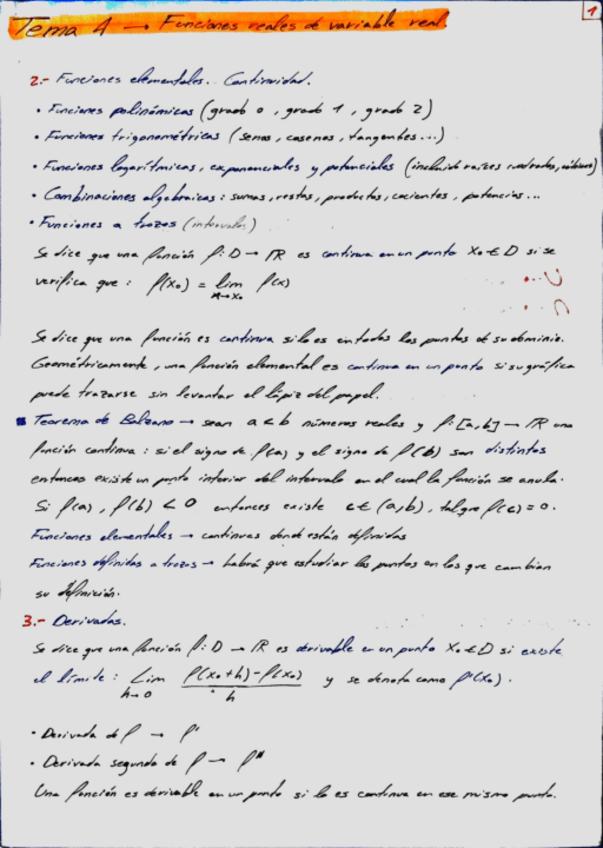 1
Tema 4 → Funciones reales de variable real.
2.- Funciones elementales. Continuidad.
• Funciones polinómicas (grado 0, grado 1, grado 2)
• Funciones trigonométricas (senos, cosenos, tangentes...)
• Funciones logarítmicas, exponenciales y potenciales (incluido raíces cuadradas, cúbicas)
• Combinaciones algebraicas: sumas, restas, productos, cocientes, potencias...
• Funciones a trozos (intervalos)
Se dice que una función f: D → IR es continua en un punto x₀ ∈ D si se
verifica que: f(x₀) = lim f(x)
x→x₀
Se dice que una función es continua si lo es en todos los puntos de su dominio.
Geométricamente, una función elemental es continua en un punto si su gráfica
puede trazarse sin levantar el lápiz del papel.
Teorema de Bolzano → sean a < b números reales y f: [a,b] → IR una
función continua: si el signo de f(a) y el signo de f(b) son distintos
entonces existe un punto interior del intervalo en el cual la función se anula.
Si f(a), f(b) < 0 entonces existe c ∈ (a,b), tal que f(c) = 0.
Funciones elementales → continuas donde están definidas
Funciones definidas a trozos → habrá que estudiar los puntos en los que cambian
su definición.
3.- Derivadas.
Se dice que una función f: D → IR es derivable en un punto x₀ ∈ D si existe
el límite: Lim f(x₀+h)-f(x₀) y se denota como f'(x₀).
h→0 h
• Derivada de f → f'
• Derivada segunda de f → f"
Una función es derivable en un punto si lo es continua en ese mismo punto.